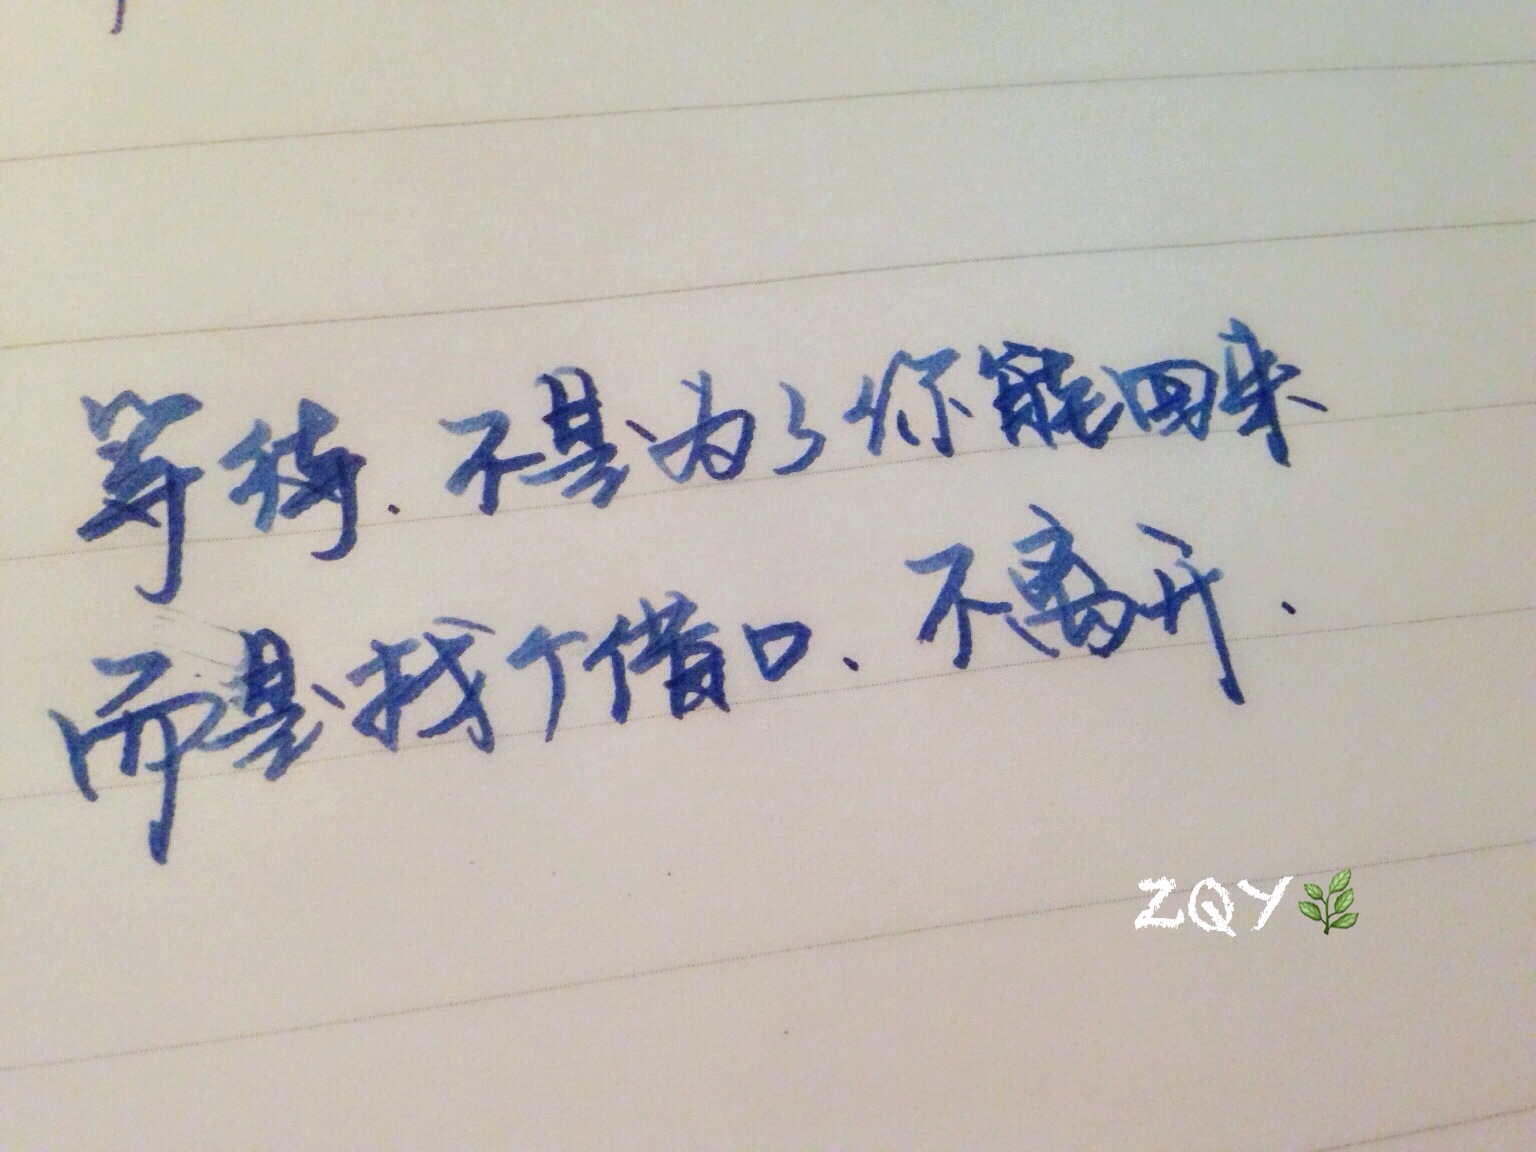 等待、不是为了你能回来
而是找个借口、不离开.
ZQY